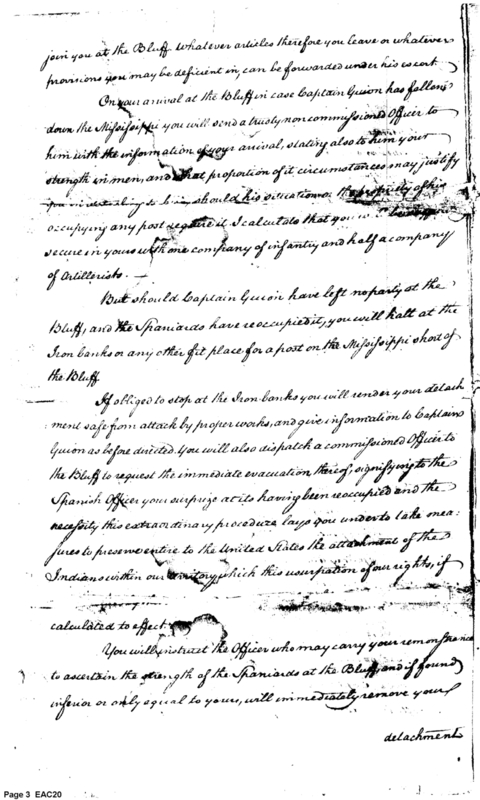 join you at the Bluff. Whatever articles therefore you leave or whatever
provisions you may be deficient in, can be forwarded under his escort.
On your arrival at the Bluff in case Captain Guion has fallen
down the Mississippi you will send a trusty non commissioned Officer to
him with the information of your arrival, stating also to him your
strength in men, and what proportion of it circumstances may justify
should his situation or the propriety of his
occupying any post require it. I calculate that you will be
secure in yours with one company of infantry and half a company
of Artillerists.
But should Captain Guion have left no party at the
Bluff, and the Spaniards have reoccupied it, you will halt at the
Iron banks or any other fit place for a post on the Mississippi short of
the Bluff.
If obliged to stop at the Iron banks you will render your detach
ment safe from attack by proper works, and give information to Captain
Guion as before directed. You will also dispatch a commissioned Officer to
the Bluff to request the immediate evacuation thereof, signifying to the
Spanish Officer your surprize at its having been reoccupied and the
necessity this extraordinary procedure lays you under to take mea:
sures to preserve entire to the United States the attachment of the
Indians within our territory which this usurpation of our rights, is
calculated to effect.
You will instruct the Officer who may carry your remonstrance
to ascertain the strength of the Spaniards at the Bluff, and if found
inferior or only equal to yours, will immediately remove your
detachment
Page 3 EAC20